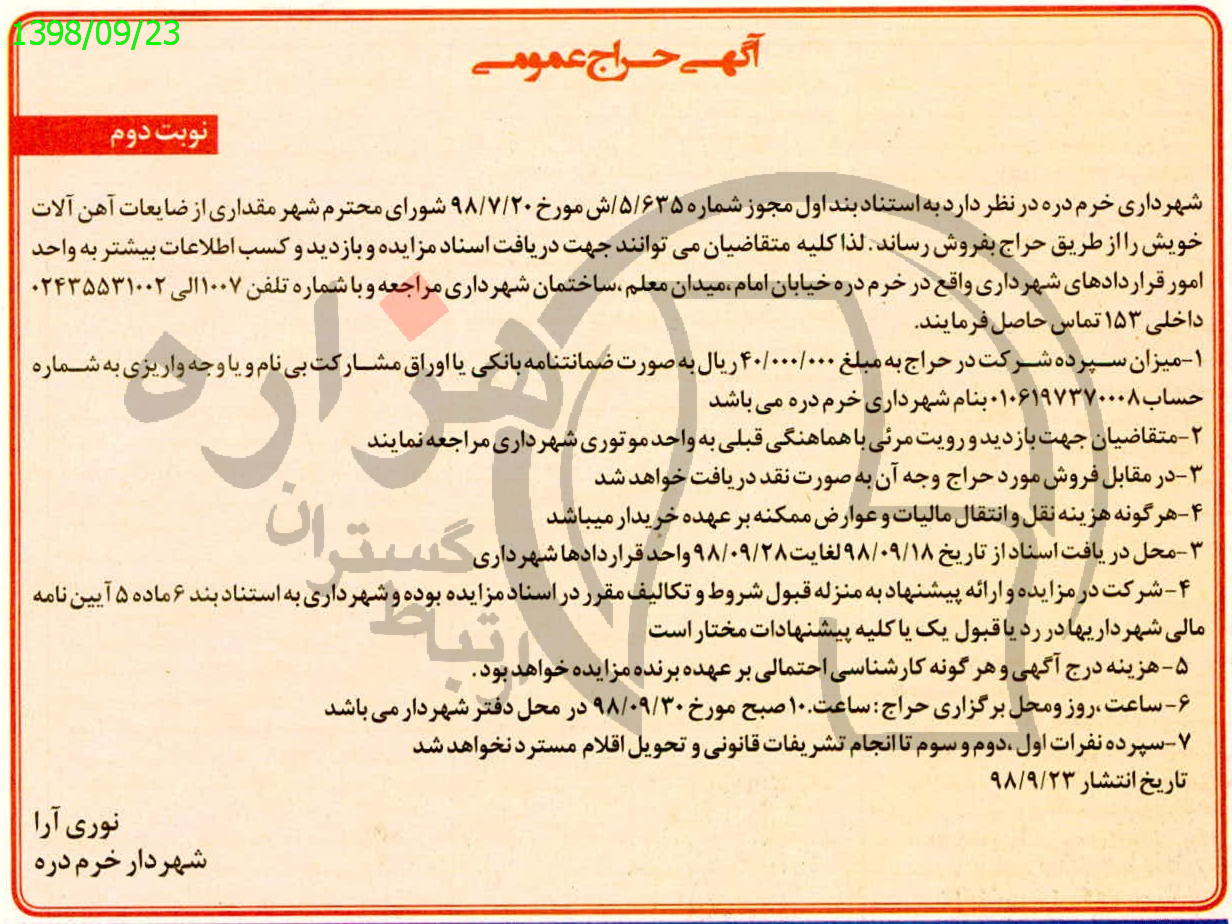 1398/09/23
آگهی حراج عمومی
نوبت دوم
شهرداری خرم دره در نظر دارد به استناد بند اول مجوز شماره ۵/۶۳۵/ش مورخ ۹۸/۷/۲۰ شورای محترم شهر مقداری از ضایعات آهن آلات
خویش را از طریق حراج بفروش رساند. لذا کلیه متقاضیان می توانند جهت دریافت اسناد مزایده و بازدید و کسب اطلاعات بیشتر به واحد
امور قراردادهای شهرداری واقع در خرم دره خیابان امام ،میدان معلم ،ساختمان شهرداری مراجعه و با شماره تلفن ۱۰۰۷ الی ۰۲۴۳۵۵۳۱۰۰۲
داخلی ۱۵۳ تماس حاصل فرمایند.
۱-میزان سپرده شرکت در حراج به مبلغ ۴۰/۰۰۰/۰۰۰ ریال به صورت ضمانتنامه بانکی یا اوراق مشارکت بی نام و یا وجه واریزی به شماره
حساب ۰۱۰۶۱۹۷۳۷۰۰۰۸ بنام شهرداری خرم دره می باشد
۲-متقاضیان جهت بازدید و رویت مرئی با هماهنگی قبلی به واحد موتوری شهرداری مراجعه نمایند
۳-در مقابل فروش مورد حراج وجه آن به صورت نقد دریافت خواهد شد
۴-هرگونه هزینه نقل و انتقال مالیات و عوارض ممکنه بر عهده خریدار میباشد
۳-محل دریافت اسناد از تاریخ ۹۸/۰۹/۱۸ لغایت ۹۸/۰۹/۲۸ واحد قراردادها شهرداری
۴-شرکت در مزایده و ارائه پیشنهاد به منزله قبول شروط و تکالیف مقرر در اسناد مزایده بوده و شهرداری به استناد بند ۶ ماده ۵ آیین نامه
مالی شهرداریها در رد یا قبول یک یا کلیه پیشنهادات مختار است
۵-هزینه درج آگهی و هر گونه کارشناسی احتمالی بر عهده برنده مزایده خواهد بود.
۶-ساعت ،روز ومحل برگزاری حراج : ساعت.۱۰ صبح مورخ ۹۸/۰۹/۳۰ در محل دفتر شهردار می باشد
۷-سپرده نفرات اول ،دوم و سوم تا انجام تشریفات قانونی و تحویل اقلام مسترد نخواهد شد
تاریخ انتشار ۹۸/۹/۲۳
نوری آرا
شهردار خرم دره
هزاره
گستران
ارتباط